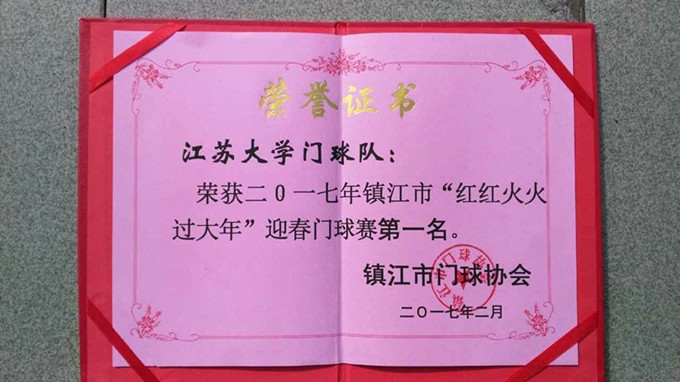 荣誉证书
江苏大学门球队：
荣获二0一七年镇江市“红红火火
过大年”迎春门球赛第一名。
镇江市门球协会
二0一七年二月
镇江市门球协会